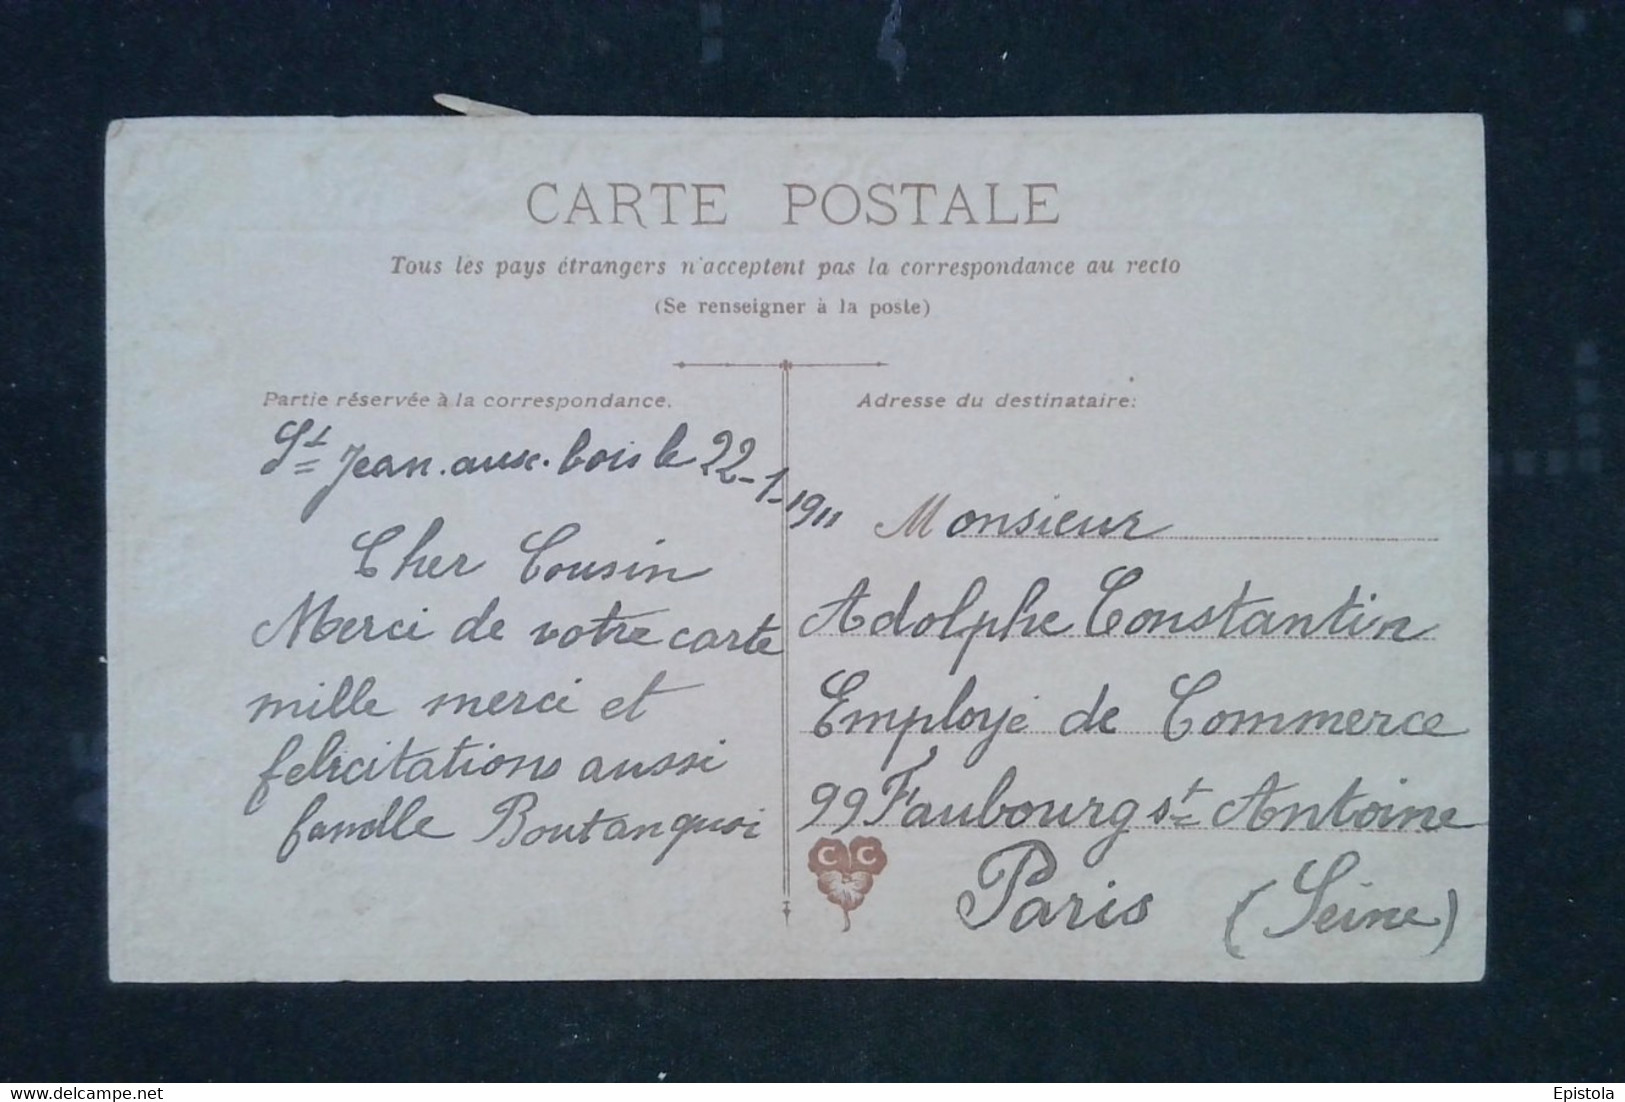 CARTE POSTALE
Tous les pays étrangers n'acceptent pas la correspondance au recto
(Se renseigner à la poste)
Partie réservée à la correspondance.
St Jean-aux-bois le 22-1-1911
Cher Cousin
Merci de votre carte
mille merci et
felicitations aussi
famille Boutanquoi
Adresse du destinataire:
Monsieur
Adolphe Constantin
Employé de Commerce
99 Faubourg st Antoine
Paris (Seine)
C C
Epistola